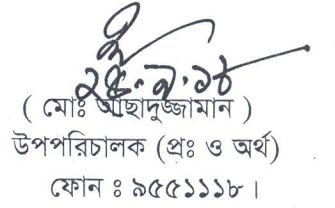 ২৫.৯.১৮
( মোঃ আছাদুজ্জামান )
উপপরিচালক (প্রঃ ও অর্থ)
ফোন ঃ ৯৫৫১১১৮।